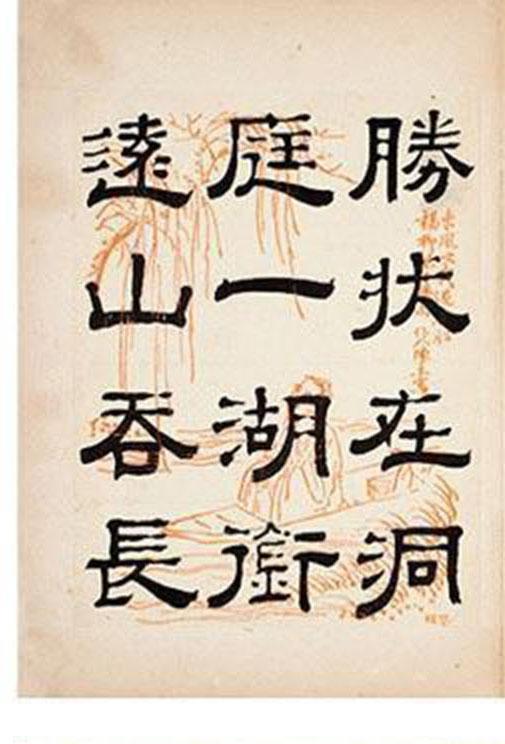 勝状在洞
庭一湖銜
遠山吞長